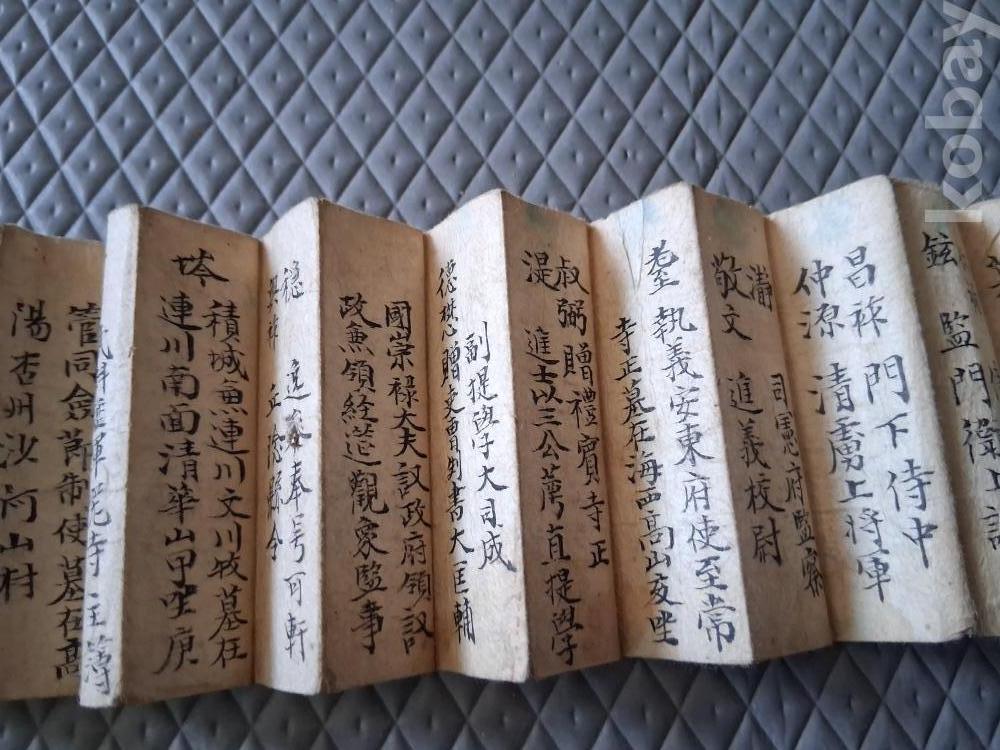 鉉 監門衛上
昌祚 門下侍中
仲源 清虜上將軍
瀞 司憲府監察
敬文 進義校尉
執義安東府使至常
寺正墓在海西高山亥坐
叔弼 贈禮賓寺正
湜 進士以三公薦直提學
副提學大司成
德 贈吏曹判書大匡輔
國崇祿大夫議政府領議
政兼領経筵觀象監事
奉号可軒
興祚 縣令
積城兼連川文川牧墓在
岑 連川南面清華山甲坐庚
寺主簿
管同僉節制使墓在高
陽杏州沙河山村
kobay